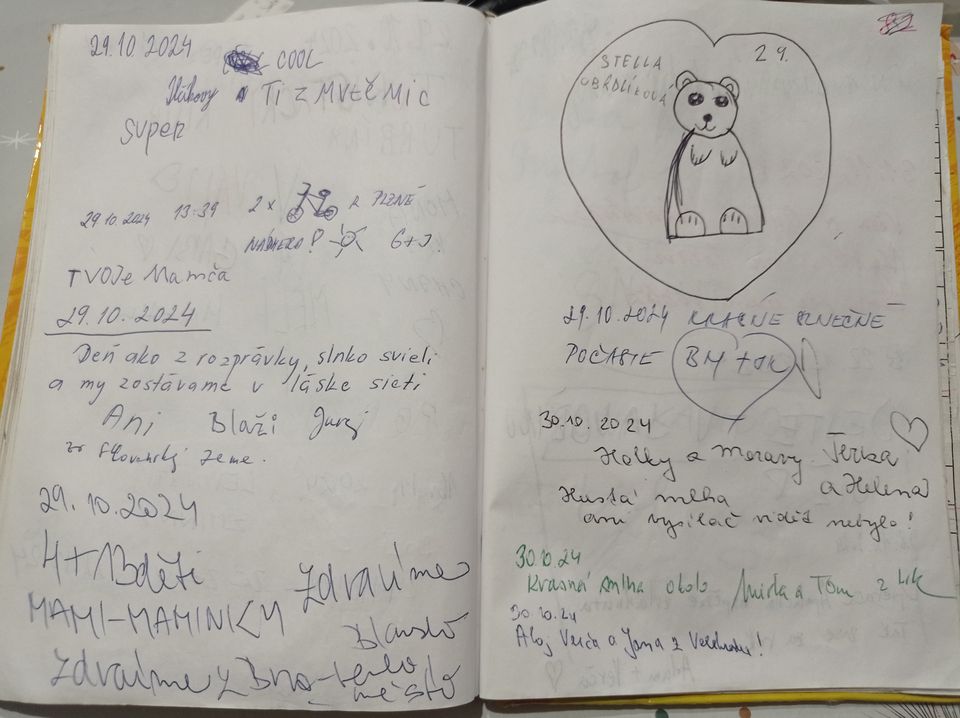 29.10.2024
COOL
TI Z
SUPER
29 10 2024 13:39 2x Z PLZNĚ
G+J!
TVOJe Mamča
29.10.2024
Deň ako z rozprávky, slnko svieti
a my zostávame v láske sieti
Ani Blaži Juraj
zo Slovenskej zeme.
29.10.2024
4+13 děti
Zdravíme
MAMI-MAMINKY
Blansko
Zdravíme z Brno-
město
STELLA
OBRDLÍKOVÁ
29.
29.10.2024 KRÁSNE SLNEČNÉ
POČASIE BM + JK
30.10.2024
Holky z Moravy Terka
a Helena
Hustá mlha
ani vysílač vidět nebylo!
30.10.24
Krásná mlha okolo Mirka a Tom z
30.10.24
Ahoj Verča a Jana z